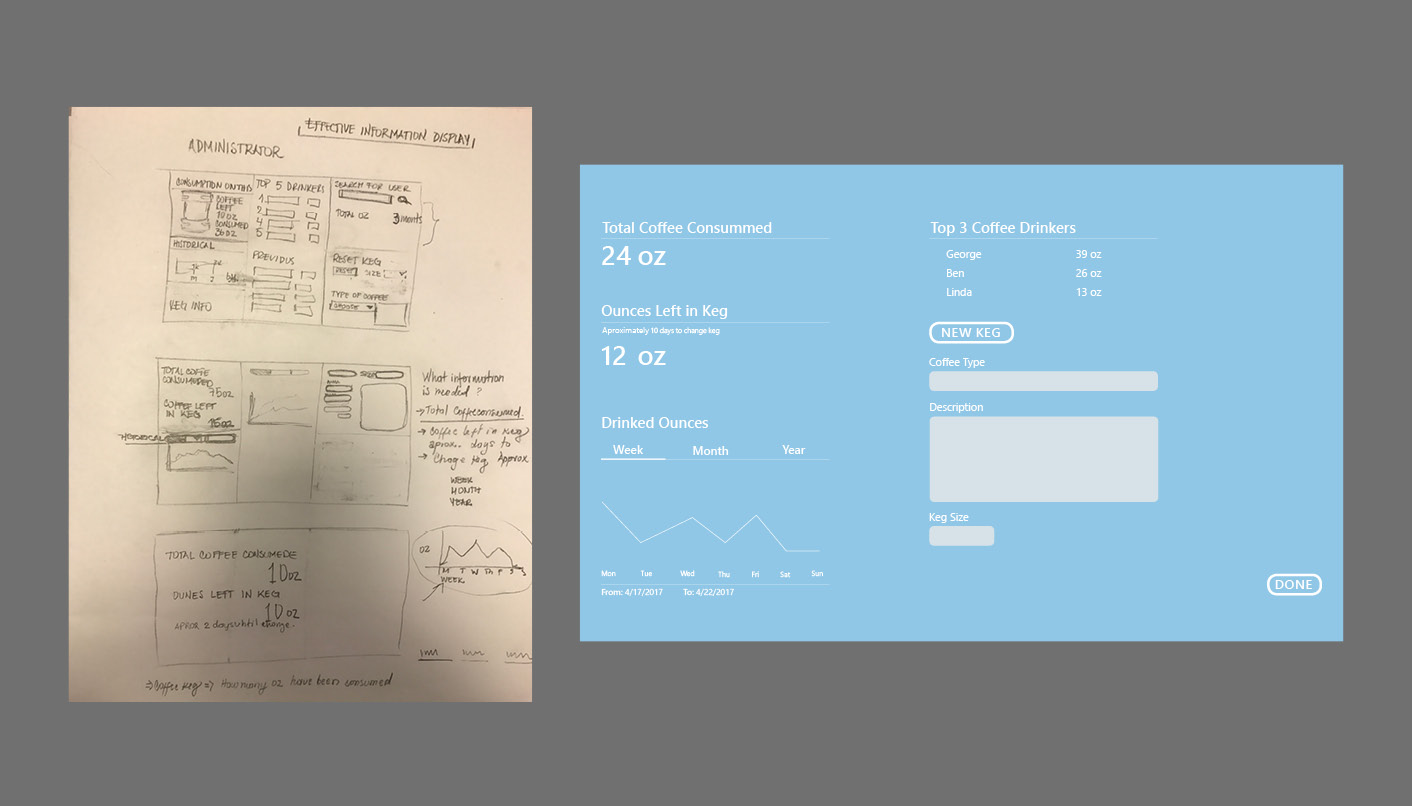 EFFECTIVE INFORMATION DISPLAY
ADMINISTRATOR
TOP 5 DRINKERS
1.
2
4
5
PREVIOUS
CONSUMPTION
COFFEE
LEFT
10 OZ
CONSUMED
36 OZ
HISTORICAL
KEG INFO
SEARCH FOR USER
TOTAL OZ
3 months
RESET KEG
RESET SIZE
TYPE OF COFFEE
CHOOSE
TOTAL COFFE
CONSUMERED
75OZ
COFFEE LEFT
IN KEG
15OZ
What information
is needed ?
→ Total Coffee consumed.
→ Coffee left in keg
aprox.. days to
→ Change Keg Approx
WEEK
MONTH
YEAR
TOTAL COFFEE CONSUMEDE
10 OZ
OUNES LEFT IN KEG
10 OZ
APROX 2 days until change.
OZ
M T W Th F S S
WEEK
⇒ Coffee Keg ⇒ How many oz have been consumed
Total Coffee Consummed
24 oz
Ounces Left in Keg
Aproximately 10 days to change keg
12 oz
Drinked Ounces
Week Month Year
Mon Tue Wed Thu Fri Sat Sun
From: 4/17/2017 To: 4/22/2017
Top 3 Coffee Drinkers
George 39 oz
Ben 26 oz
Linda 13 oz
NEW KEG
Coffee Type
Description
Keg Size
DONE